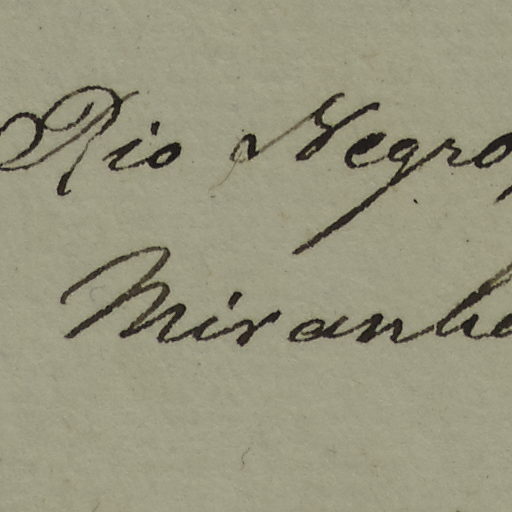 Rio Negro,
Miranhe